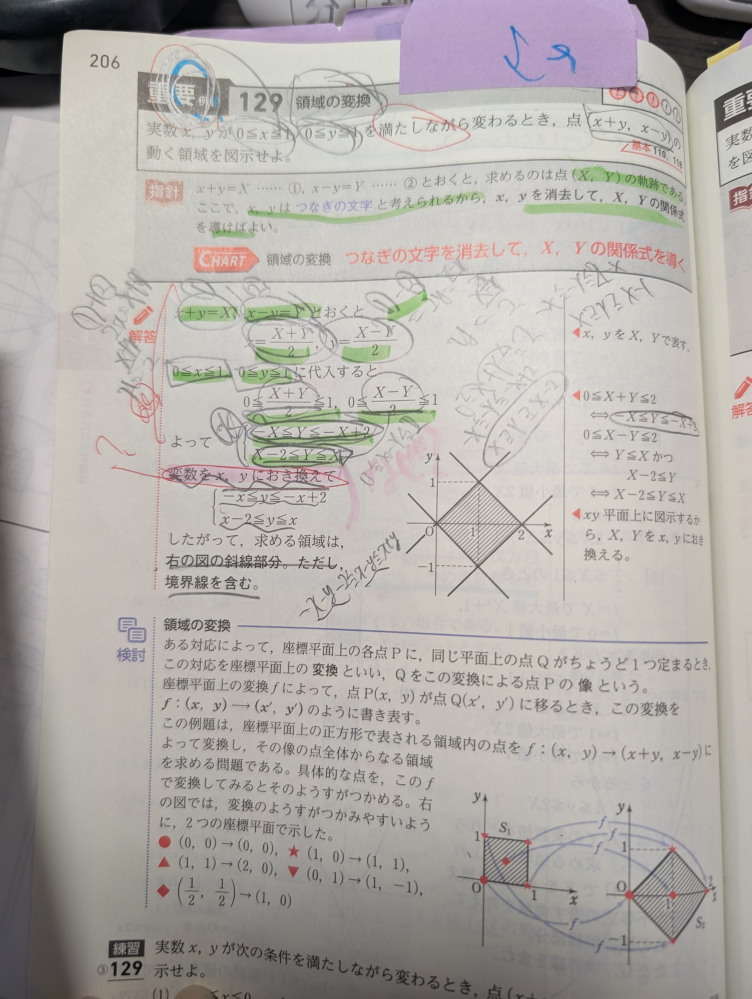 206
重要 例
129 領域の変換
実数x, yが0≦x≦1, 0≦y≦1を満たしながら変わるとき，点(x+y, x−y)の
動く領域を図示せよ。
基本110, 118
指針
x+y=X ……①, x−y=Y ……②とおくと，求めるのは点(X, Y)の軌跡である。
ここで，x, yはつなぎの文字と考えられるから，x, yを消去して，X, Yの関係式
を導けばよい。
CHART 領域の変換 つなぎの文字を消去して，X, Yの関係式を導く
解答
x+y=X, x−y=Yとおくと
x=X+Y/2, y=X−Y/2
0≦x≦1, 0≦y≦1に代入すると
0≦X+Y/2≦1, 0≦X−Y/2≦1
よって
−X≦Y≦−X+2
X−2≦Y≦X
変数をx, yにおき換えて
−x≦y≦−x+2
x−2≦y≦x
したがって，求める領域は，
右の図の斜線部分。ただし，
境界線を含む。
y
1
O
1
2
x
−1
◀x, yをX, Yで表す。
◀0≦X+Y≦2
⇔ −X≦Y≦−X+2
0≦X−Y≦2
⇔ Y≦X かつ
X−2≦Y
⇔ X−2≦Y≦X
◀xy平面上に図示するか
ら，X, Yをx, yにおき
換える。
?
検討
領域の変換
ある対応によって，座標平面上の各点Pに，同じ平面上の点Qがちょうど1つ定まるとき，
この対応を座標平面上の変換といい，Qをこの変換による点Pの像という。
座標平面上の変換fによって，点P(x, y)が点Q(x′, y′)に移るとき，この変換を
f：(x, y)→(x′, y′)のように書き表す。
この例題は，座標平面上の正方形で表される領域内の点をf：(x, y)→(x+y, x−y)に
よって変換し，その像の点全体からなる領域
を求める問題である。具体的な点を，このf
で変換してみるとそのようすがつかめる。右
の図では，変換のようすがつかみやすいよう
に，2つの座標平面で示した。
● (0, 0)→(0, 0), ★ (1, 0)→(1, 1),
▲ (1, 1)→(2, 0), ▼ (0, 1)→(1, −1),
◆ (1/2, 1/2)→(1, 0)
y
1
S₁
O
1
x
f
f
f
f
y
1
O
1
2
x
S₂
−1
練習
③129
実数x, yが次の条件を満たしながら変わるとき，点(x+
示せよ。